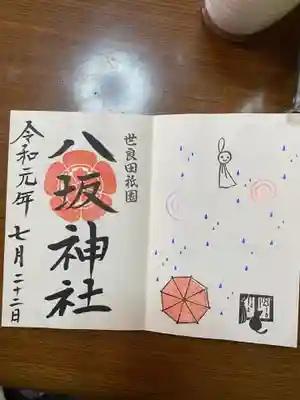 世良田祇園
八坂神社
令和元年 七月二十二日